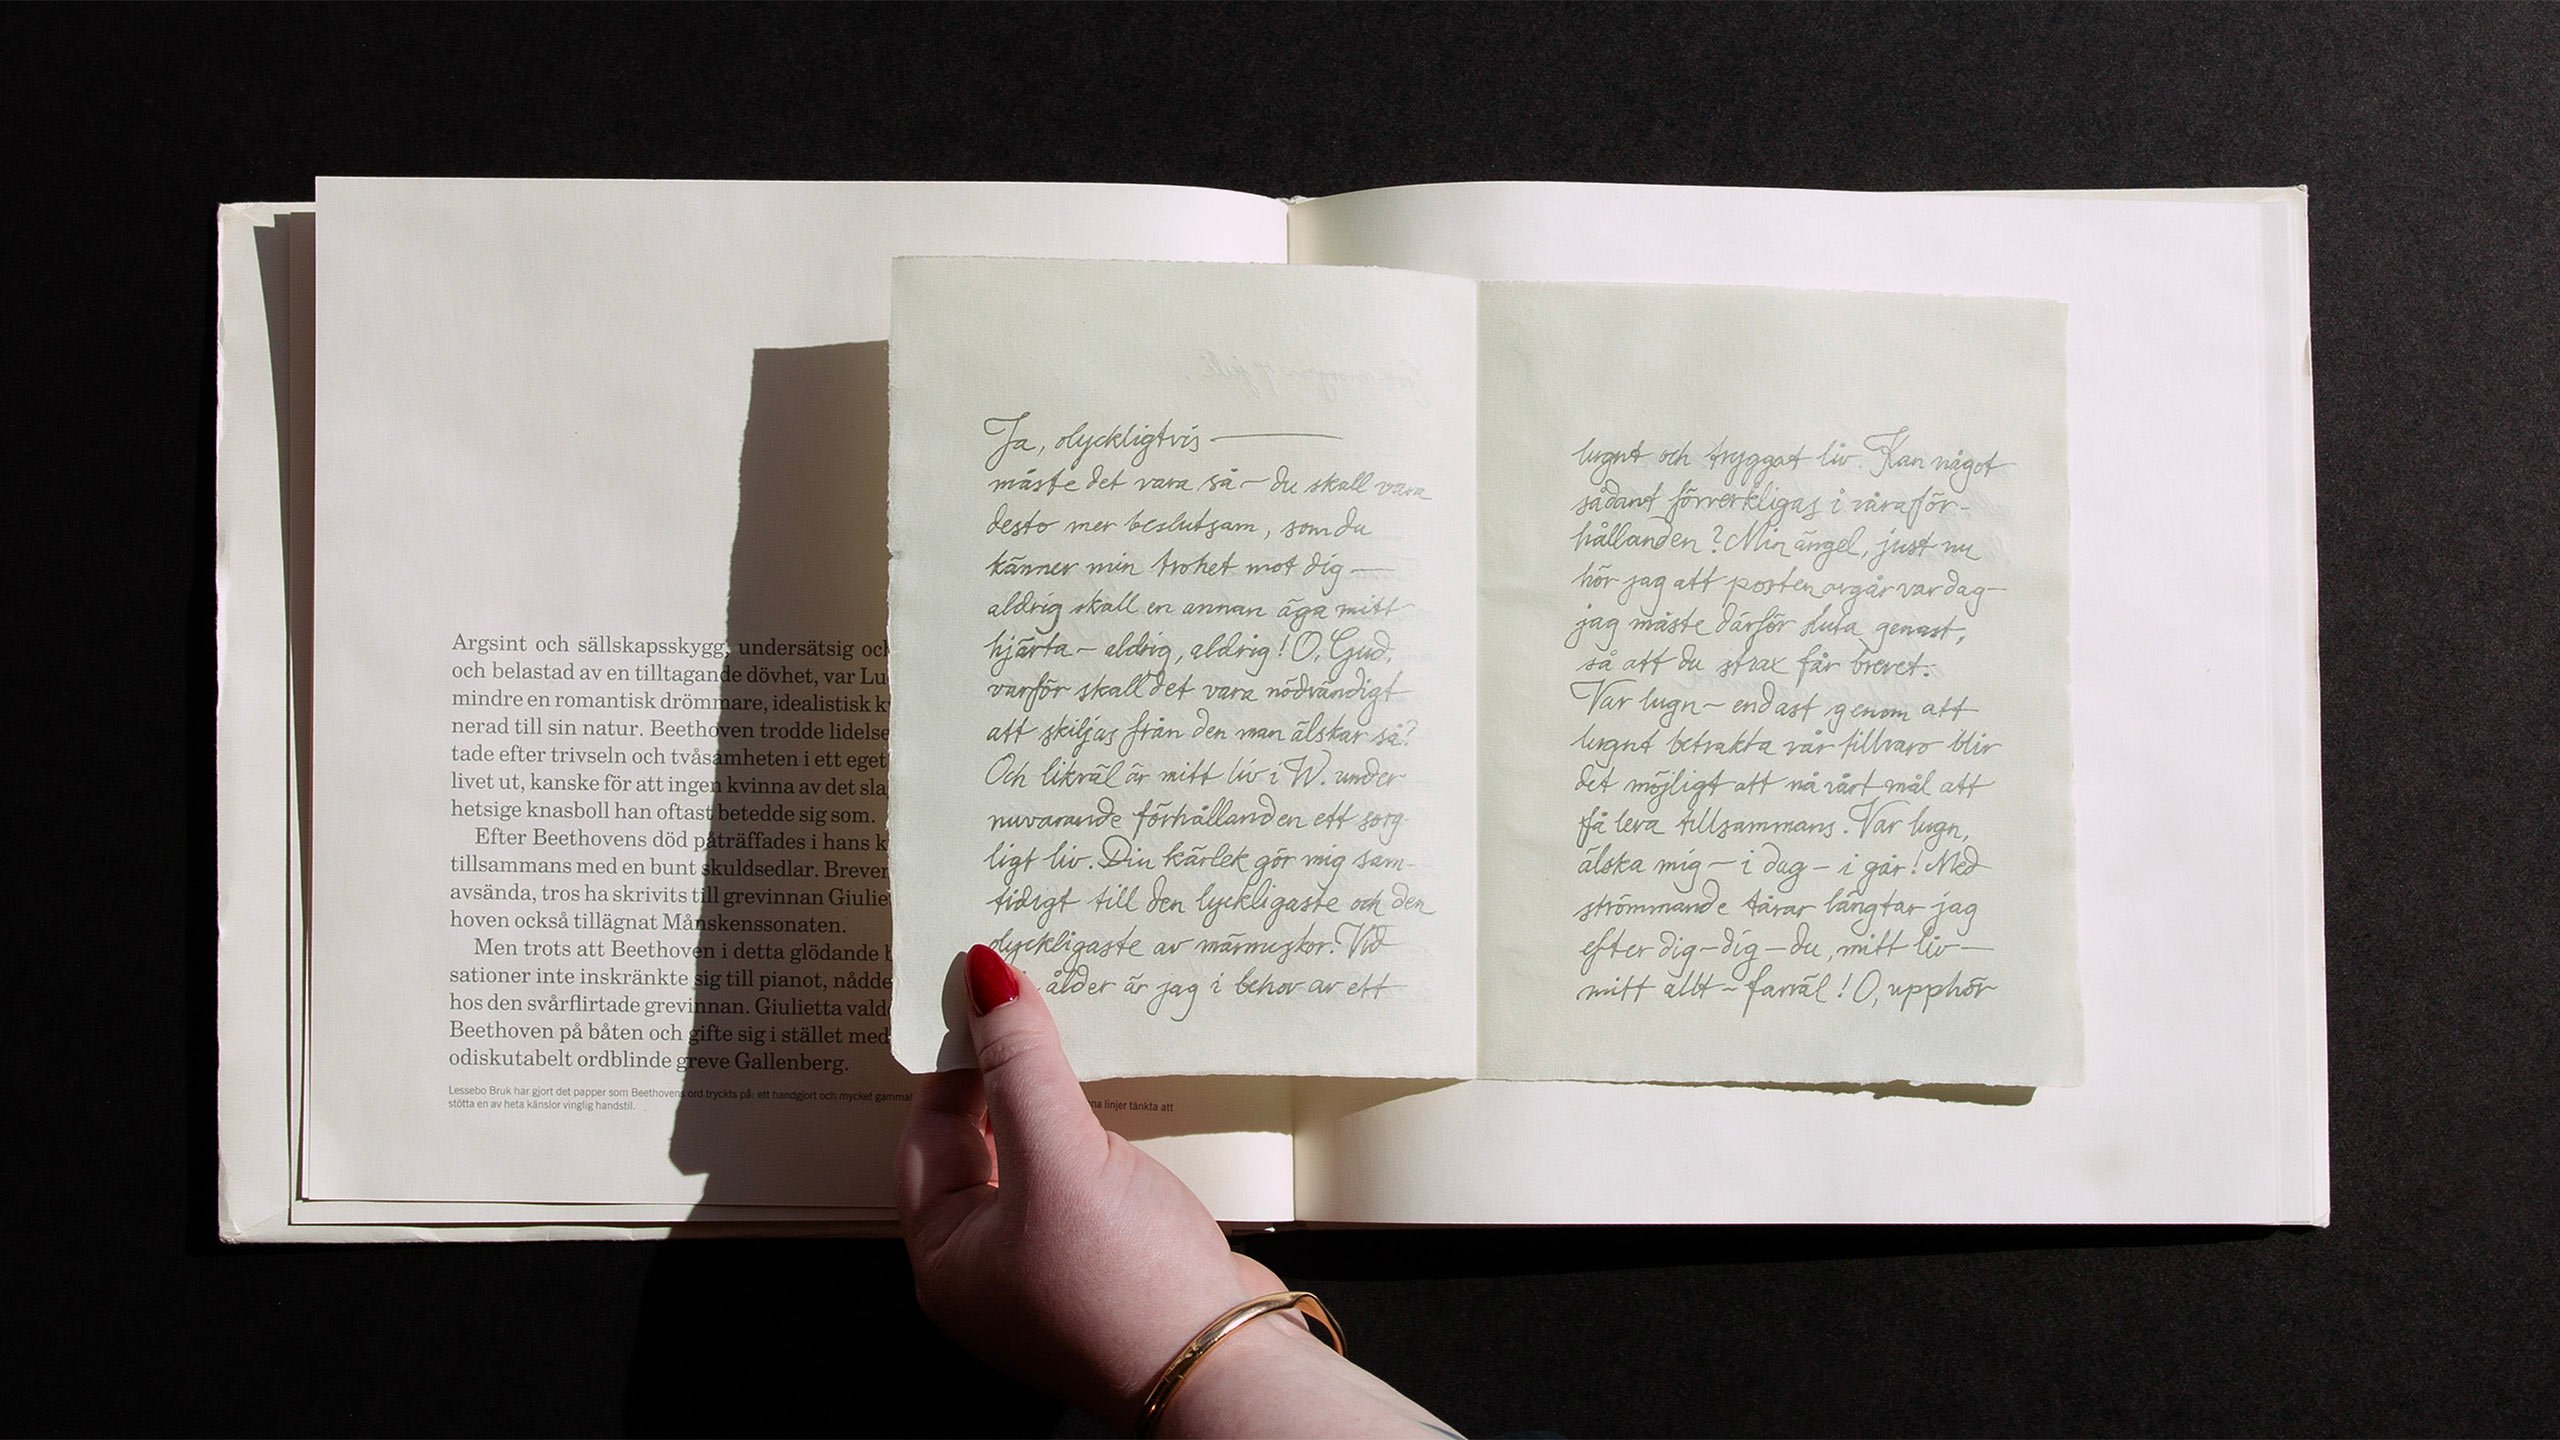 Argsint och sällskapsskygg, undersätsig och
och belastad av en tilltagande dövhet, var Lu
mindre en romantisk drömmare, idealistisk k
nerad till sin natur. Beethoven trodde lidelse
tade efter trivseln och tvåsamheten i ett eget
livet ut, kanske för att ingen kvinna av det sla
hetsige knasboll han oftast betedde sig som.
Efter Beethovens död påträffades i hans k
tillsammans med en bunt skuldsedlar. Breven
avsända, tros ha skrivits till grevinnan Giulie
hoven också tillägnat Månskenssonaten.
Men trots att Beethoven i detta glödande b
sationer inte inskränkte sig till pianot, nådde
hos den svårflirtade grevinnan. Giulietta valde
Beethoven på båten och gifte sig i stället med
odiskutabelt ordblinde greve Gallenberg.
Lessebo Bruk har gjort det papper som Beethovens ord tryckts på: ett handgjort och mycket gammal
na linjer tänkta att
stötta en av heta känslor vinglig handstil.
Ja, olyckligtvis —
måste det vara så – du skall vara
desto mer beslutsam, som du
känner min trohet mot dig —
aldrig skall en annan äga mitt
hjärta – aldrig, aldrig! O, Gud,
varför skall det vara nödvändigt
att skiljas från den man älskar så?
Och likväl är mitt liv i W. under
nuvarande förhållanden ett sorg-
ligt liv. Din kärlek gör mig sam-
tidigt till den lyckligaste och den
olyckligaste av människor. Vid
ålder är jag i behov av ett
lugnt och tryggat liv. Kan något
sådant förverkligas i våra för-
hållanden? Min ängel, just nu
hör jag att posten avgår var dag –
jag måste därför sluta genast,
så att du strax får brevet.
Var lugn – endast genom att
lugnt betrakta vår tillvaro blir
det möjligt att nå vårt mål att
få leva tillsammans. Var lugn,
älska mig – i dag – i går! Med
strömmande tårar längtar jag
efter dig – dig – du, mitt liv —
mitt allt – farväl! O, upphör